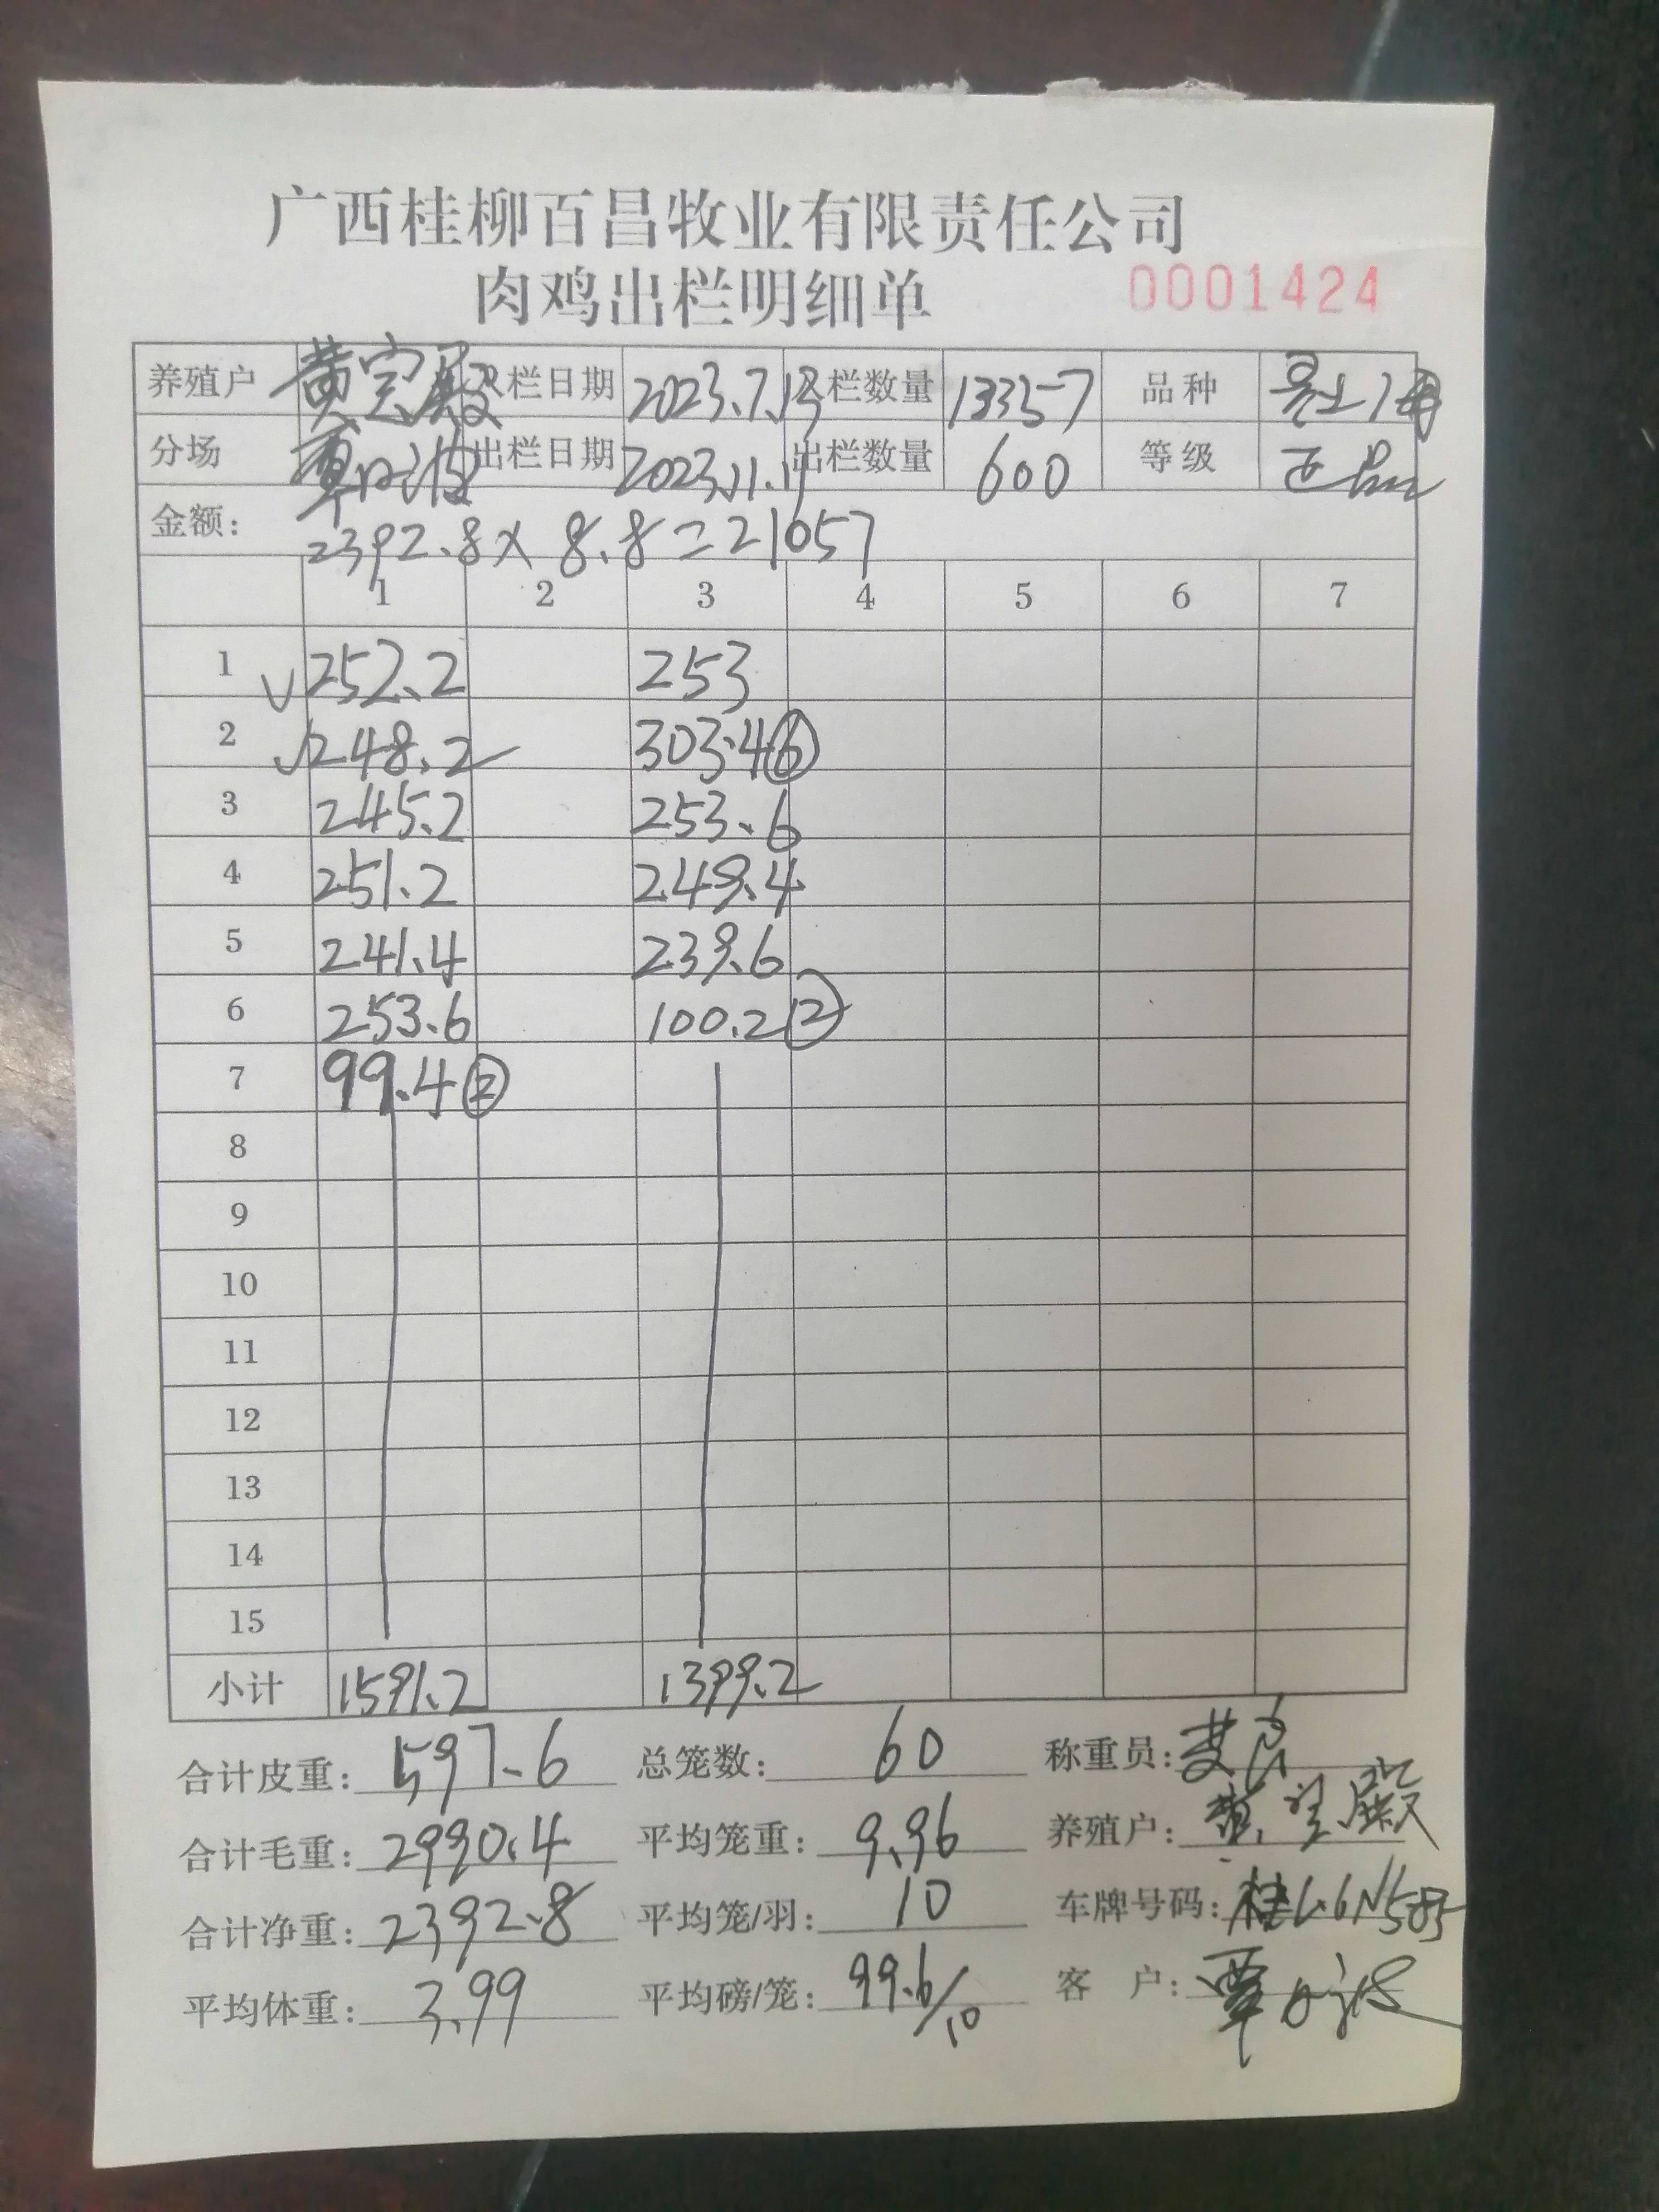 广西桂柳百昌牧业有限责任公司
肉鸡出栏明细单 0001424
养殖户 黄宝殿 栏日期 2023.7.13 栏数量 13357 品种
分场 覃 出栏日期 2023.11.11 出栏数量 600 等级 正品
金额: 2392.8 × 8.8 = 21057
1 2 3 4 5 6 7
1 √ 252.2 253
2 √ 248.2 303.4 ⑥
3 245.2 253.6
4 251.2 249.4
5 241.4 239.6
6 253.6 100.2 ②
7 99.4 ②
8
9
10
11
12
13
14
15
小计 1591.2 1399.2
合计皮重: 597.6 总笼数: 60 称重员:
合计毛重: 2990.4 平均笼重: 9.96 养殖户: 黄宝殿
合计净重: 2392.8 平均笼/羽: 10 车牌号码: 桂L6N585
平均体重: 3.99 平均磅/笼: 99.6/10 客 户: 覃